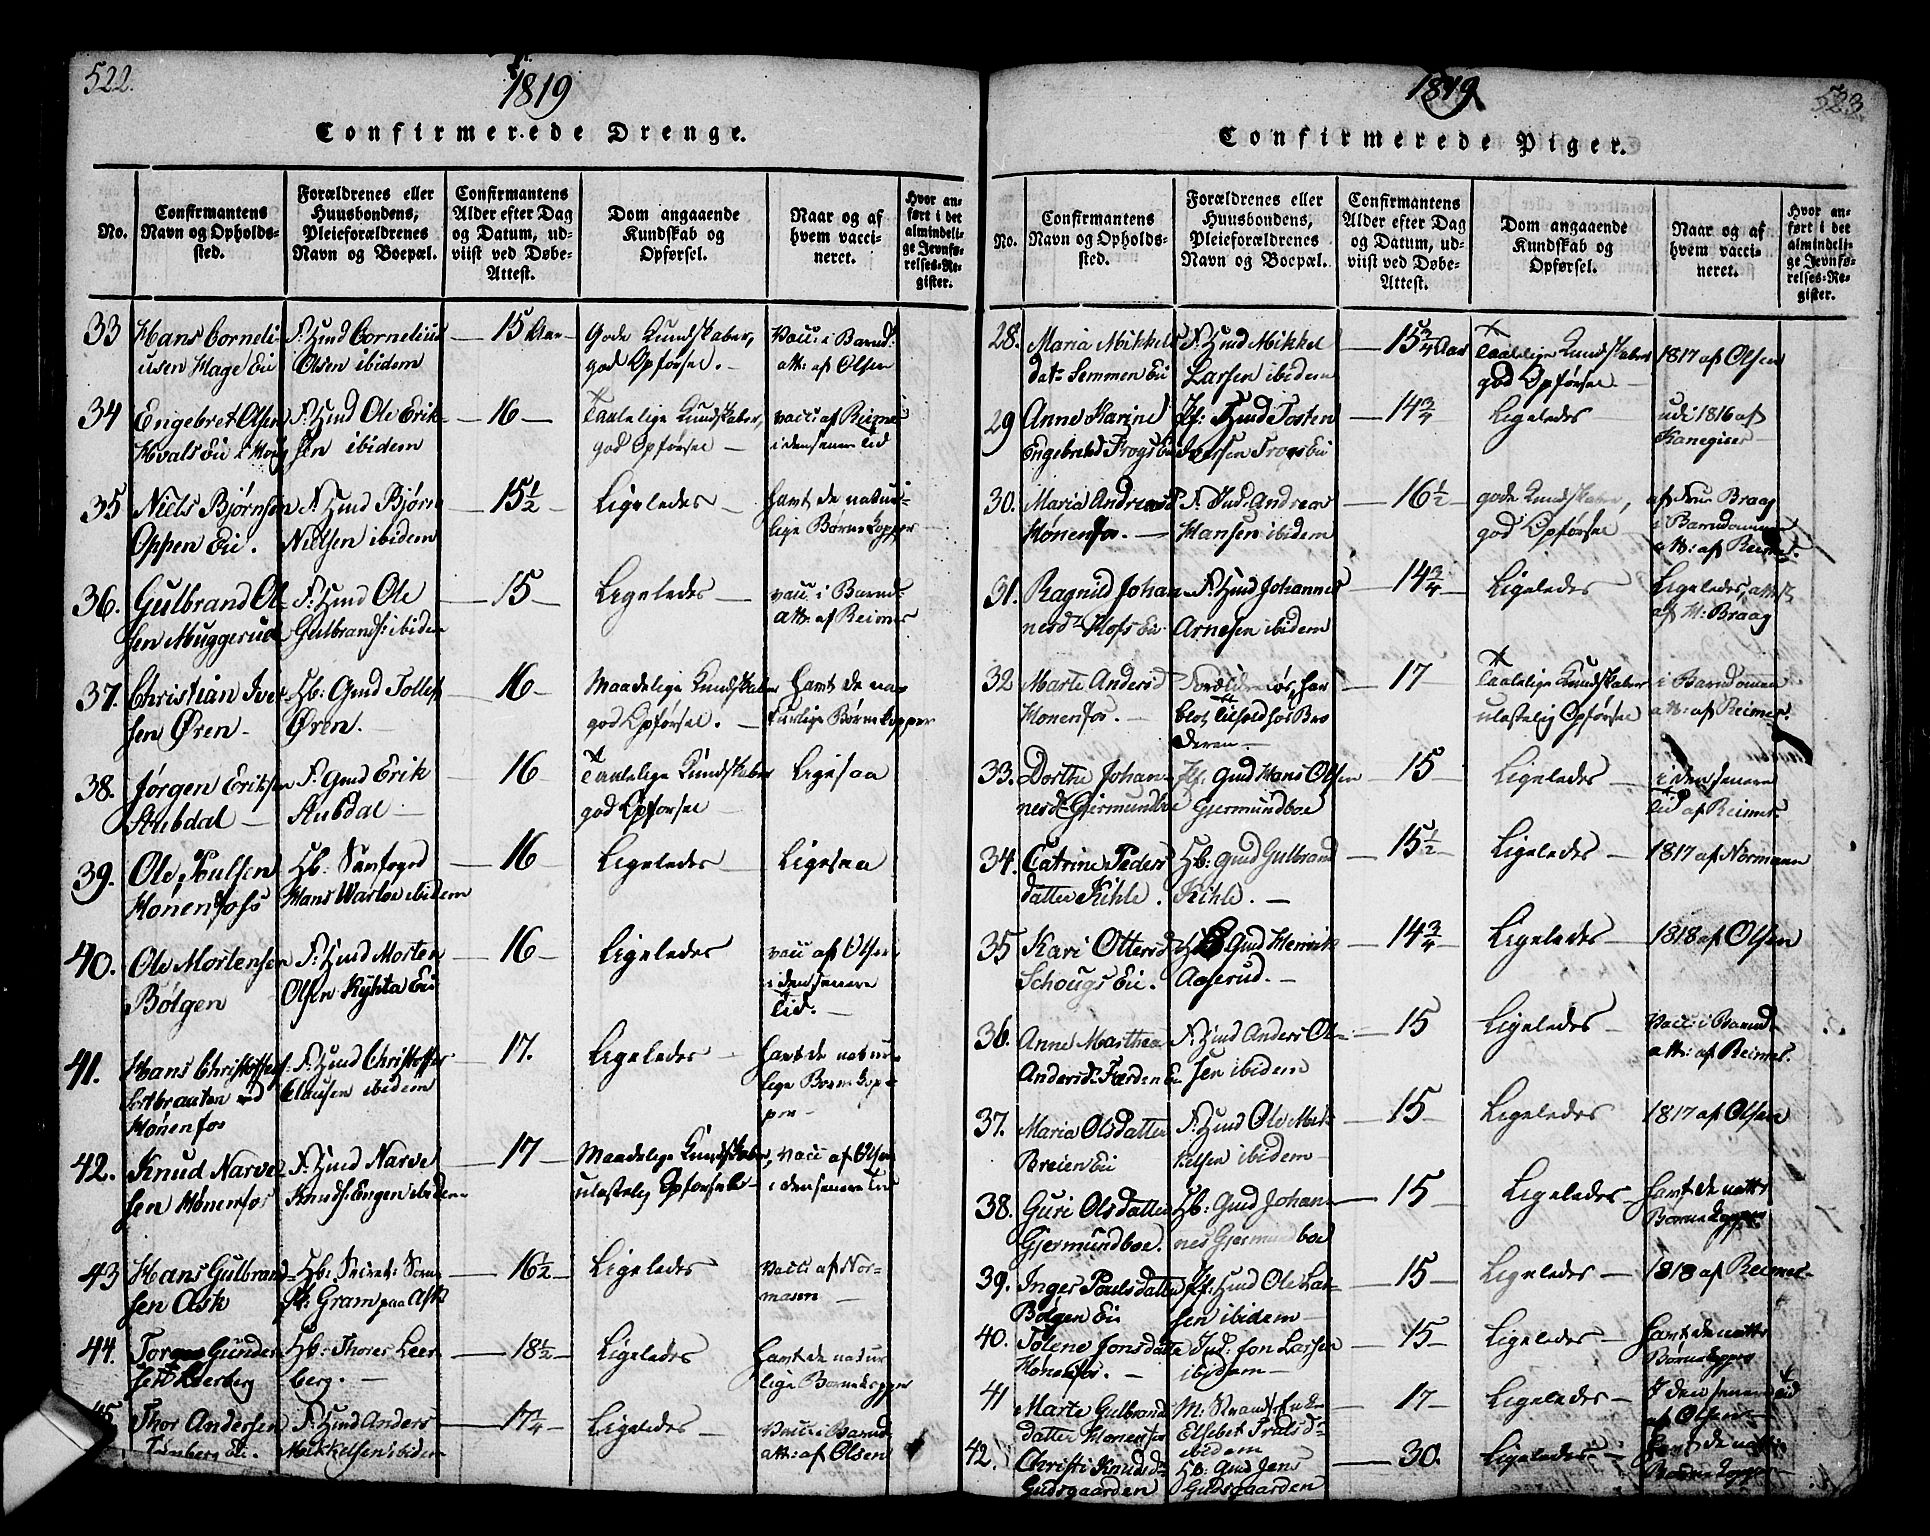 522.
1819
Confirmerede Drenge.
No.
Confirmantens
Navn og Opholds-
sted.
Forældrenes eller
Huusbondens,
Pleieforældrenes
Navn og Boepæl.
Confirmantens
Alder efter Dag
og Datum, ud-
viist ved Døbe-
Attest.
Dom angaaende
Kundskab og
Opførsel.
Naar og af
hvem vacci-
neret.
Hvor an-
ført i det
almindeli-
ge Jevnfø-
relses-Re-
gister.
33
Hans Corneli-
usen Hage Eie
F: Huusmd Cornelius
Olsen ibidem
15 Aar
Gode Kundskaber,
god Opførsel. -
Vacc: i Barnd:
att: af Olsen
34
Engebret Olsen
Hvals Eie
F: Huusmd Ole Erik-
sen ibidem
16
Taalelige Kundskaber,
god Opførsel
vacc: af Reimers
i den senere Tid
35
Niels Bjørnsen
Oppen Eie.
F: Huusmd Bjørn
Nielsen ibidem
15½
Ligeledes
hawt de natur-
lige Børnekopper
36.
Gulbrand Ol-
sen Muggerud
F: Huusmd Ole
Gulbrands: ibidem
15
Ligeledes
vacc: i Barnd:
att: af Reimers
37.
Christian Iver-
sen Øren
Hb: Gmd Tollef
Øren.
16
Maadelige Kundskaber
god Opførsel.
havt de na-
turlige Børnekopper
38.
Jørgen Eriksen
Stubdal
F: Gmd Erik
Stubdal
16
Taalelige Kundskaber
god Opførsel
Ligesaa
39.
Ole Poulsen
Hønenfos
Hans Warloe ibidem
16
Ligeledes
Ligesaa
40.
Ole Mortensen
Bølgen
F: Huusmd Morten
Olsen Kyhta Eie
16
Ligeledes
vacc: af Olsen
i den senere
Tid.
41.
Hans Christoffers:
ved
Hønenfos
F: Huusmd Christoffer
Clausen ibidem
17.
Ligeledes
havt de natur-
lige Børnekop-
per
42.
Knud Narve-
sen Hønenfos
F: Huusmd Narve
Knuds: Engen ibidem
17
Maadelige Kundskaber,
ulastelig Opførsel
vacc: af Olsen
i den senere Tid
43
Hans Gulbrand-
sen Ask
Gram paa Ask
16½
Ligeledes
Vacc: af Nor-
mann
44.
Gunder-
sen Leerberg
Hb: Thorer Leer-
berg.
18½
Ligeledes
havt de natur-
lige Børnekopper
45
Thor Andersen
Eie.
F: Huusmd Anders
Mikkelsen ibidem
17¼
Ligeledes
Vacc: i Barnd:
att: af Olsen
1819
523
Confirmerede Piger.
No.
Confirmantens
Navn og Opholds-
sted.
Forældrenes eller
Huusbondens,
Pleieforældrenes
Navn og Boepæl.
Confirmantens
Alder efter Dag
og Datum, ud-
viist ved Døbe-
Attest.
Dom angaaende
Kundskab og
Opførsel.
Naar og af
hvem vacci-
neret.
Hvor an-
ført i det
almindeli-
ge Jevnfø-
relses-Re-
gister.
28.
Maria Mikkels-
dat: Semmen Eie
F: Huusmd Mikkel
Larsen ibidem
15¾ Aar
Taalelige Kundskaber
god Opførsel
1817 af Olsen
29
Anne Karine
Engebretsd Frogs Eie
Huusmd Tosten
Iversen Frogs Eie
14¾
Ligeledes
udi 1816 af
Kanegiser
30.
Maria Andreasd
Hønenfos.
F: Ind: Andreas
Hansen ibidem
16½
gode Kundskaber,
god Opførsel
af Frue Braag
i Barndommen
att: af Reimers.
31.
Ragnild Johan-
nesd: Hofs Eie
F: Huusmd Johannes
Arnesen ibidem
14¾
Ligeledes
Ligeledes, attest
af H: Braag
32
Marte Andersd
Hønenfos.
Tilhold hos Bro-
deren
17
Taalelige Kundskaber
ulastelig Opførsel
i Barndommen
att: af Reimers.
33.
Dorthe Johan-
nesd: Gjermundboe
Gmd Hans Olsen
Gjermundboe
15
Ligeledes
i den senere
Tid af Reimers
34.
Catrine Peders-
datter Kihle.
Hb: Gmd Gulbrand
Kihle.
15½
Ligeledes
1817 af Normann
35
Kari Ottersd
Schougs Eie.
Gmd Henrik
Aaserud.
14¾
Ligeledes
1818 af Olsen
36.
Anne Marthea
Andersd: Færden Eie
F: Huusmd Anders Ol-
sen ibidem
15
Ligeledes
Vacc: i Barnd:
att: af Reimers.
37.
Maria Olsdatter
Breien Eie
F: Huusmd Ole Mik-
kelsen ibidem
15
Ligeledes
1817 af Olsen
38.
Guri Olsdatter
Gjermundboe.
Hb: Gmd Johan-
nes Gjermundboe
15
Ligeledes
havt de natt:
Børnekopper
39.
Inger Poulsdatter
Bølgen Eie
Huusmd Ole Lar-
sen ibidem
15
Ligeledes
1818 af Reimers
40.
Tolene Jonsdatter
Hønenfos.
Ind: Jon Larsen
ibidem
15
Ligeledes
havt de natt:
Børnekopper
41
Marte Gulbrands-
datter Hønenfos
ibidem
17
Ligeledes
I den senere Tid
af Olsen
42.
Christi Knudsd:
Gudsgaarden
Hb: Gmd Jens
Gudsgaarden
30.
Ligeledes
havt de natt:
Børnekopper